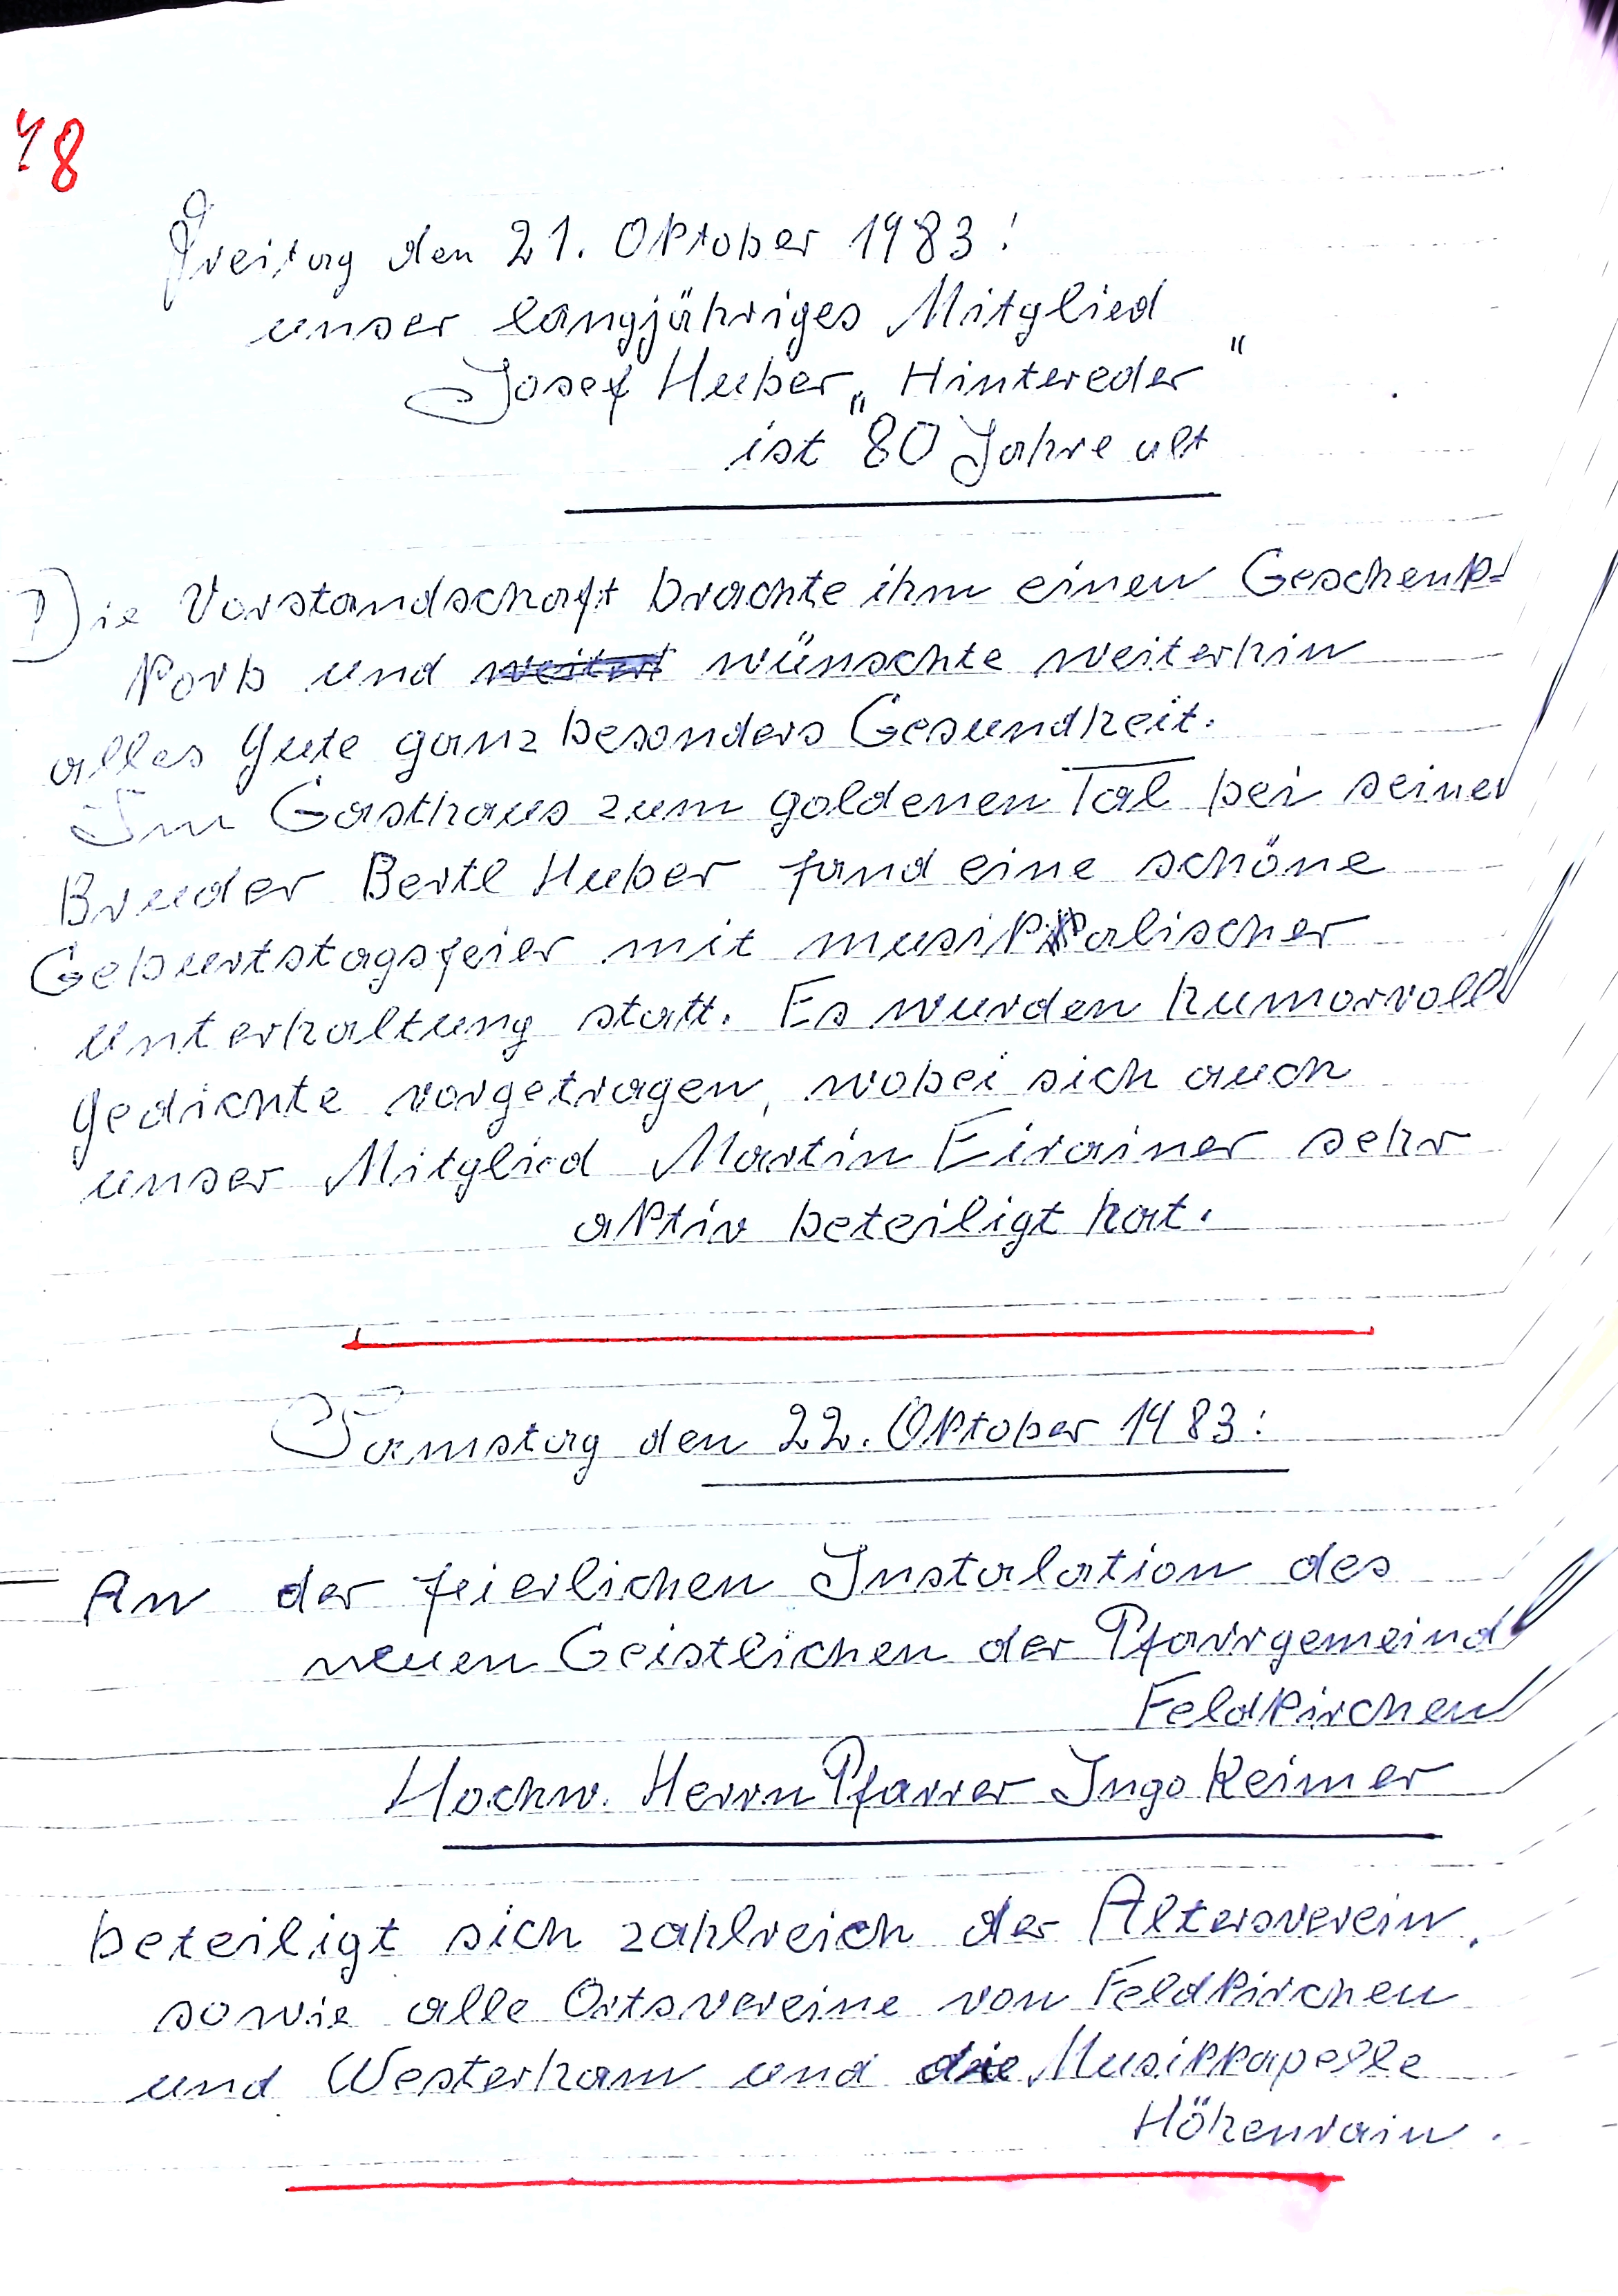 48
Freitag den 21. Oktober 1983:
unser langjähriges Mitglied
Josef Huber „Hintereder"
ist 80 Jahre alt
Die Vorstandschaft brachte ihm einen Geschenk=
korb und weitert wünschte weiterhin
alles gute ganz besonders Gesundheit.
Im Gasthaus zum goldenen Tal bei seiner
Bruder Bertl Huber fand eine schöne
Geburtstagsfeier mit musikalischer
unterhaltung statt. Es wurden humorvoll
gedichte vorgetragen, wobei sich auch
unser Mitglied Martin Eirainer sehr
aktiv beteiligt hat.
Samstag den 22. Oktober 1983:
An der feierlichen Instalation des
neuen Geistlichen der Pfarrgemeind
Feldkirchen
Hochw. Herrn Pfarrer Ingo Reimer
beteiligt sich zahlreich der Altersverein,
sowie alle Ortsvereine von Feldkirchen
und Westerham und die Musikkapelle
Höhenrain.